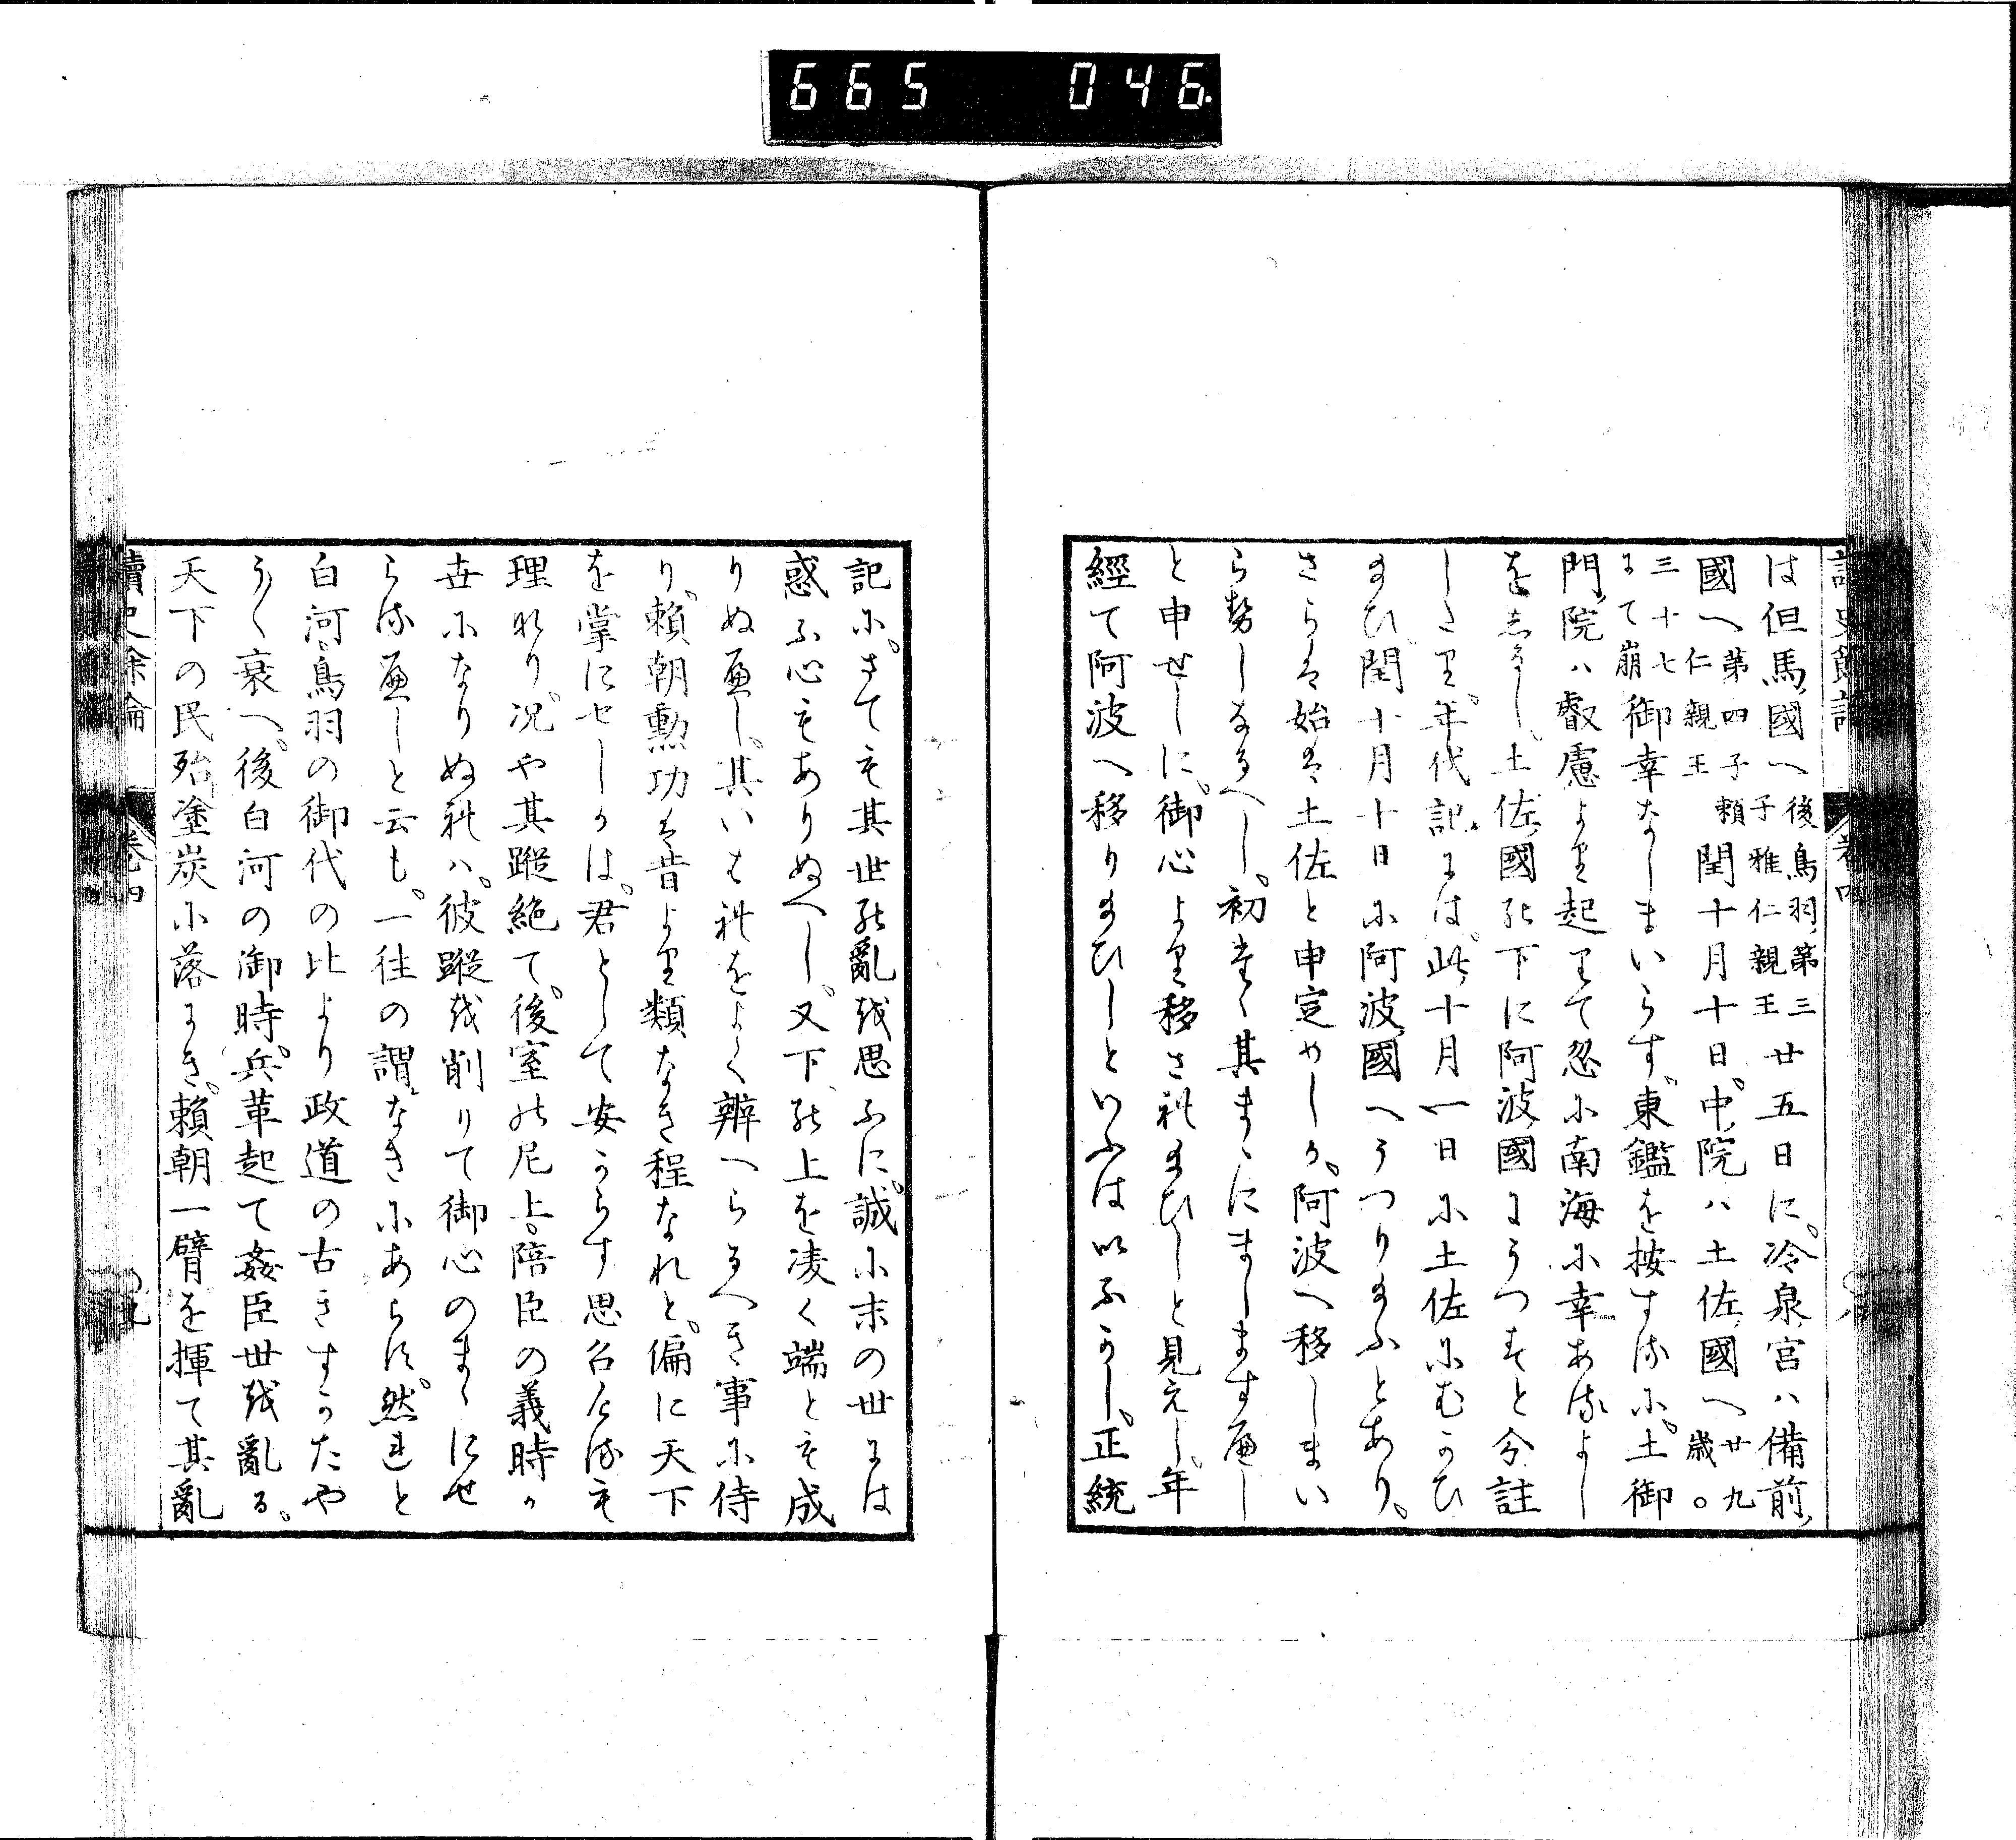 665 046.
は但馬國へ後鳥羽第三子雅仁親王廿五日に冷泉宮ハ備前
國へ第四子頼仁親王閏十月十日中院ハ土佐國へ廿九歳。
三十七にて崩御幸なしまいらす東鑑を按するに土御
門院ハ叡慮より起りて忽に南海に幸あるよし
をしるし土佐國の下に阿波國にうつると分註
したり年代記には此十月一日に土佐にむかひ
給ひ閏十月十日に阿波國へうつり給ふとあり
さらは始は土佐と申定めしか阿波へ移しまい
らせしなるへし初たゝ其まゝにましますへし
と申せしに御心より移され給ひしと見えし年
經て阿波へ移り給ひしといふは いふかし正統
記にさても其世の亂を思ふに誠に末の世には
惑ふ心もありぬへし又下の上を凌く端とも成
りぬへし其いはれをよく辨へらるへき事に侍
り頼朝勲功は昔より類なき程なれと偏に天下
を掌にせしかは君として安からす思召けるも
理なり况や其蹤絶て後室の尼上陪臣の義時か
世になりぬれハ彼蹤を削りて御心のまゝにせ
らるへしと云も一往の謂なきにあらす然れと
白河鳥羽の御代の比より政道の古きすかたや
うく衰へ後白河の御時兵革起て姦臣世を亂る
天下の民殆塗炭に落にき頼朝一臂を揮て其亂
讀史余論 卷四